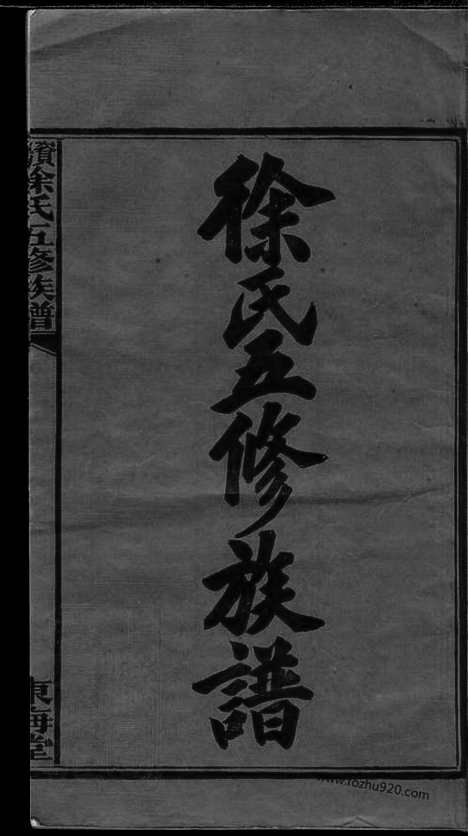 徐氏五修族譜
濱徐氏五修族譜
東海堂
www.rozhu920.com